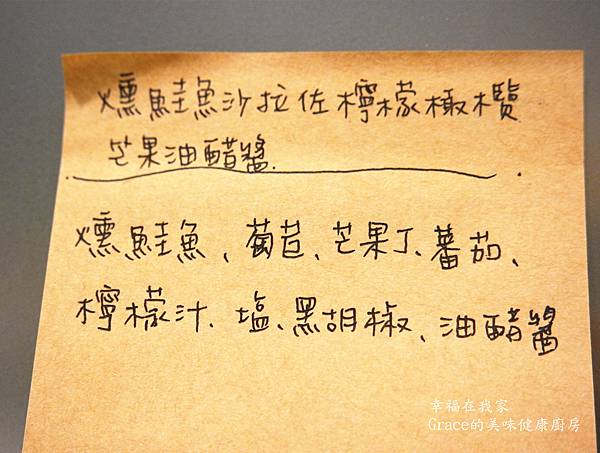 燻鮭魚沙拉佐檸檬橄欖
芒果油醋醬.
燻鮭魚、萵苣、芒果丁、蕃茄、
檸檬汁、塩、黑胡椒、油醋醬
幸福在我家
Grace的美味健康廚房